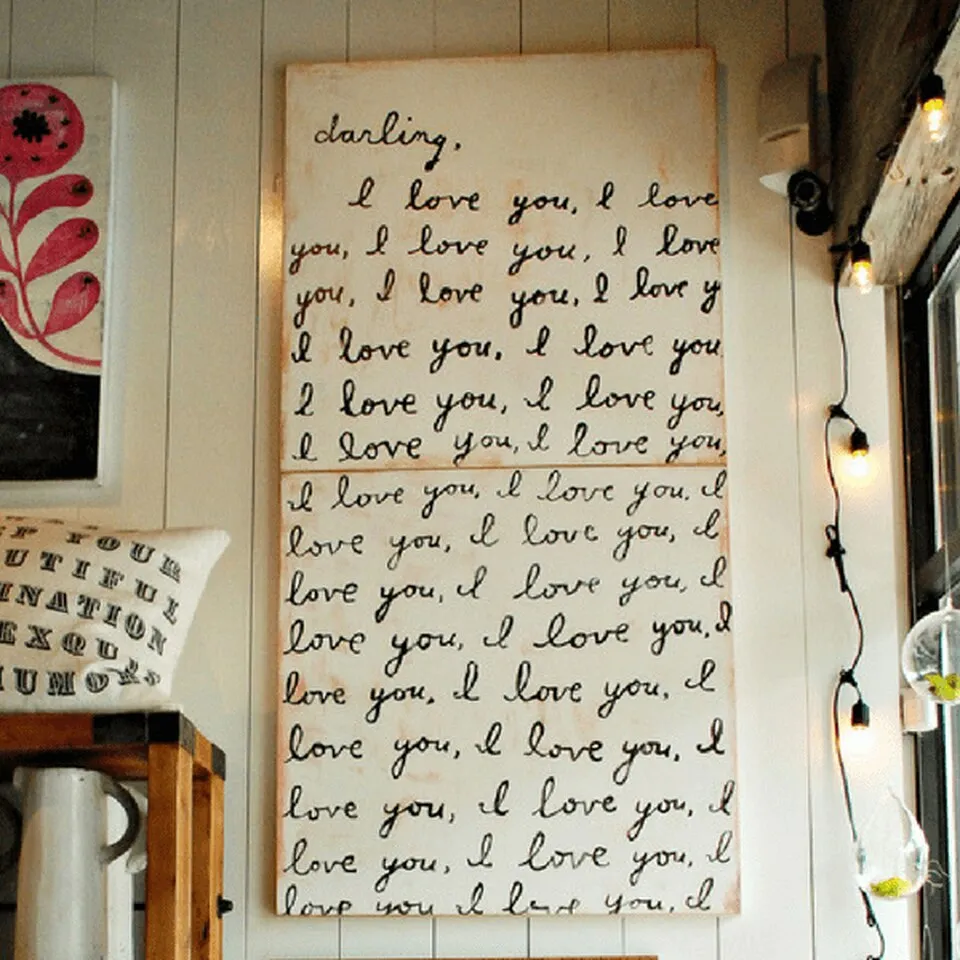 darling,
I love you, I love
you, I love you, I love
you, I love you, I love y
I love you, I love you
I love you, I love you,
I love you, I love you,
I love you, I love you, I
love you, I love you, I
love you, I love you, I
love you, I love you, I
love you, I love you, I
love you, I love you, I
love you, I love you, I
love you, I love you, I
love you I love you, I
P YOUR
UTIFUL
INATION
EXQU
UMO